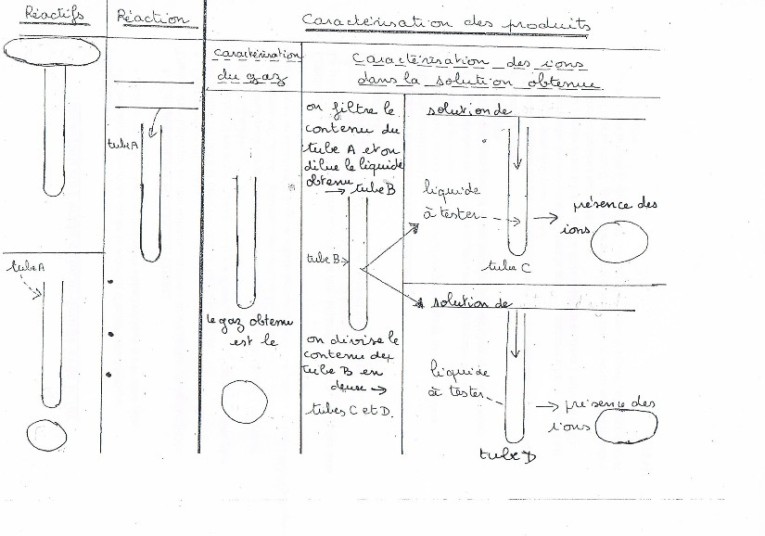 Réactifs
Réaction
Caractérisation des produits
Caractérisation
du gaz
Caractérisation des ions
dans la solution obtenue
tube A
tube A
le gaz obtenu
est le
on filtre le
contenu du
tube A et on
dilue le liquide
obtenu
→ tube B
tube B
on divise le
contenu du
tube B en
deux →
tubes C et D.
solution de
liquide
à tester
tube C
présence des
ions
solution de
liquide
à tester
tube D
présence des
ions